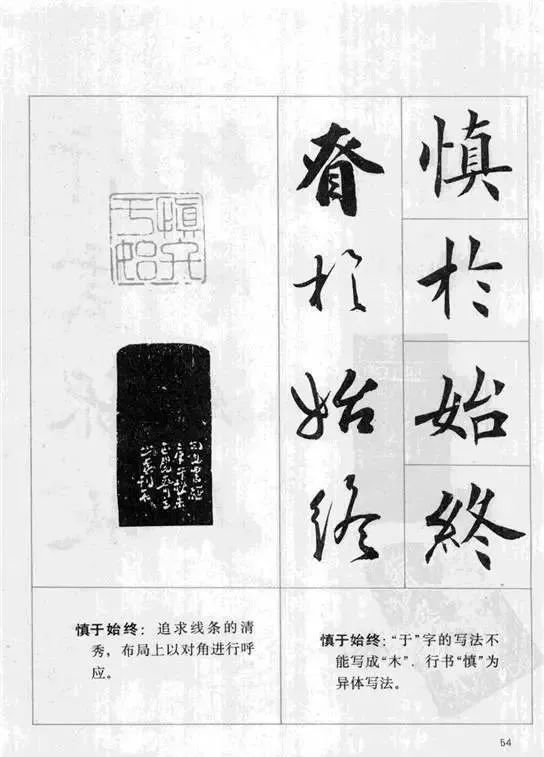 慎
於
始
終
昚
於
始
终
慎于始终
慎于始终：追求线条的清
秀，布局上以对角进行呼
应。
慎于始终：“于”字的写法不
能写成“木”．行书“慎”为
异体写法。
54